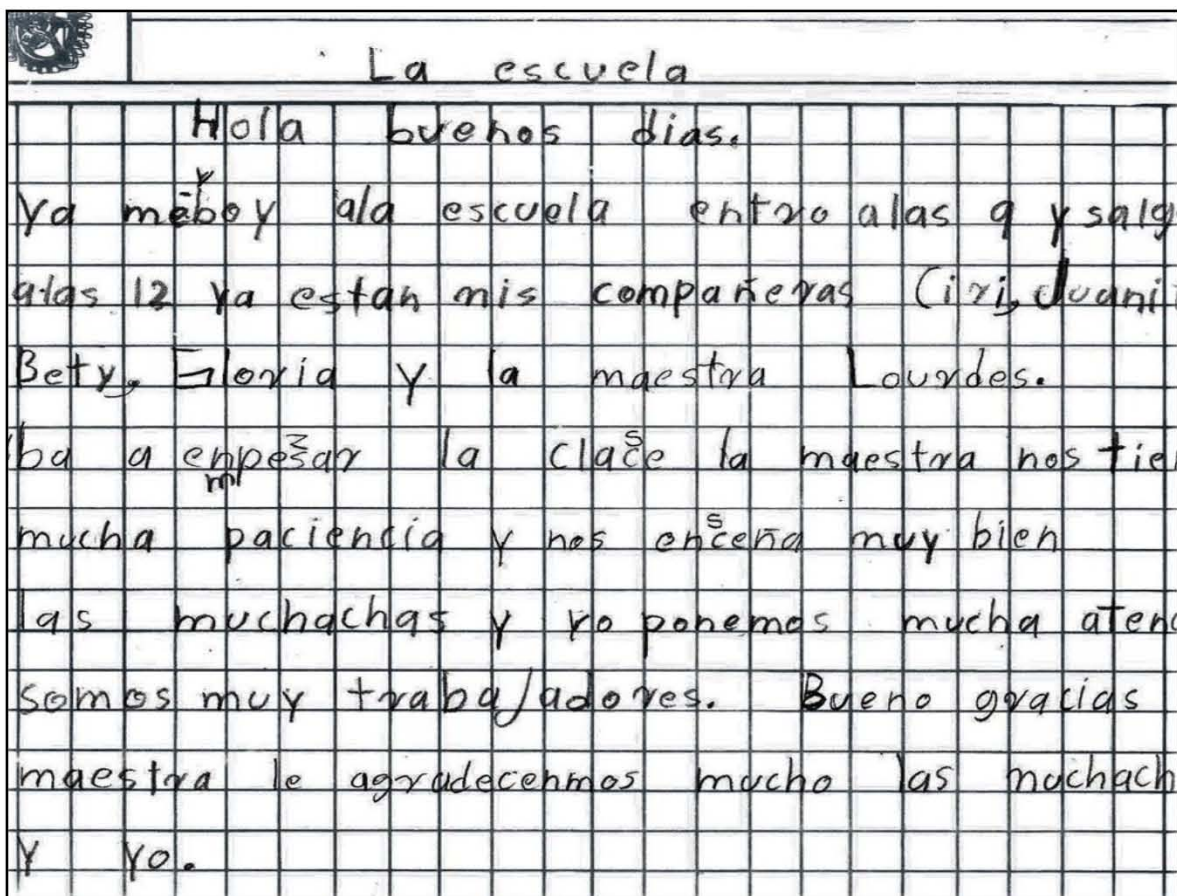 La escuela
Hola buenos dias.
Ya meboy ala escuela entro alas 9 y salg
alas 12 ya estan mis compañeras Ciri, Juani
Bety, Gloria y la maestra Lourdes.
ba a enpesar la clace la maestra nos tie
mucha paciencia y nos enceña muy bien
las muchachas y yo ponemos mucha atenc
somos muy trabajadores. Bueno gracias
maestra le agradecenmos mucho las muchach
y yo.